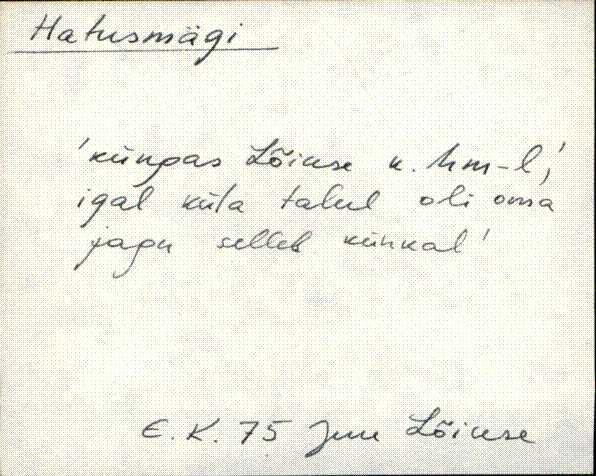 Hatusmägi
'küngas Lõiuse k. hm-l',
igal küla talul oli oma
jagu sellel künkal'
E.K. 75 Juu Lõiuse